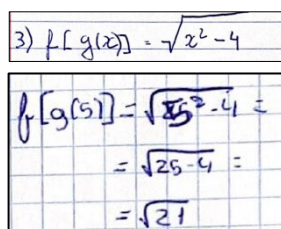 3) f[g(x)] = √x² - 4
f[g(5)] = √5² - 4 =
= √25 - 4 =
= √21